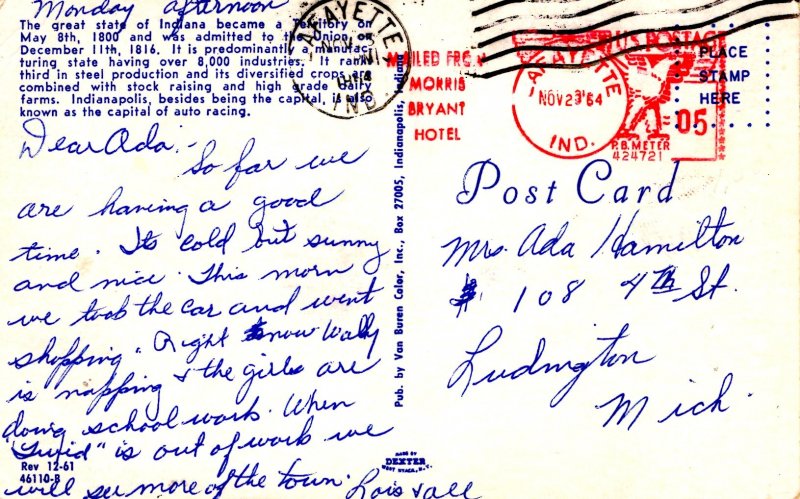 Monday afternoon
The great state of Indiana became a Territory on
May 8th, 1800 and was admitted to the Union on
December 11th, 1816. It is predominantly a manufac-
turing state having over 8,000 industries. It ranks
third in steel production and its diversified crops are
combined with stock raising and high grade dairy
farms. Indianapolis, besides being the capital, is also
known as the capital of auto racing.
Dear Ada:-
So far we
are having a good
time. Its cold but sunny
and nice. This morn
we took the car and went
shopping. Right now Wally
is napping & the girls are
doing school work. When
is out of work we
will see more of the town.
Lois & all
Rev 12-61
46110-B
Pub. by Van Buren Color, Inc., Box 27005, Indianapolis, Indiana
MADE BY
DEXTER
WEST NYACK, N.Y.
LAFAYETTE
NOV
1964
IND
MAILED FROM
MORRIS
BRYANT
HOTEL
LAFAYETTE
NOV 23 '64
IND.
U.S. POSTAGE
05
P.B. METER
424721
PLACE
STAMP
HERE
Post Card
Mrs. Ada Hamilton
108 4th St.
Ludington
Mich.